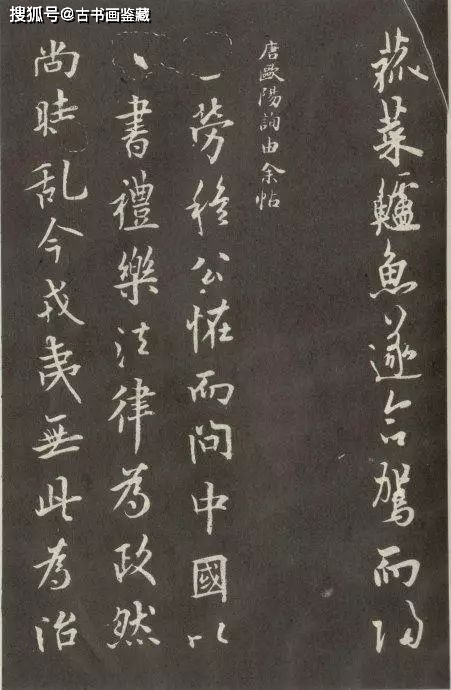 搜狐号@古书画鉴藏
菰菜鱸魚遂命駕而歸
唐歐陽詢由余帖
勞穆公怪而問中國以
書禮樂法律為政然
尚時乱今戎夷無此為治